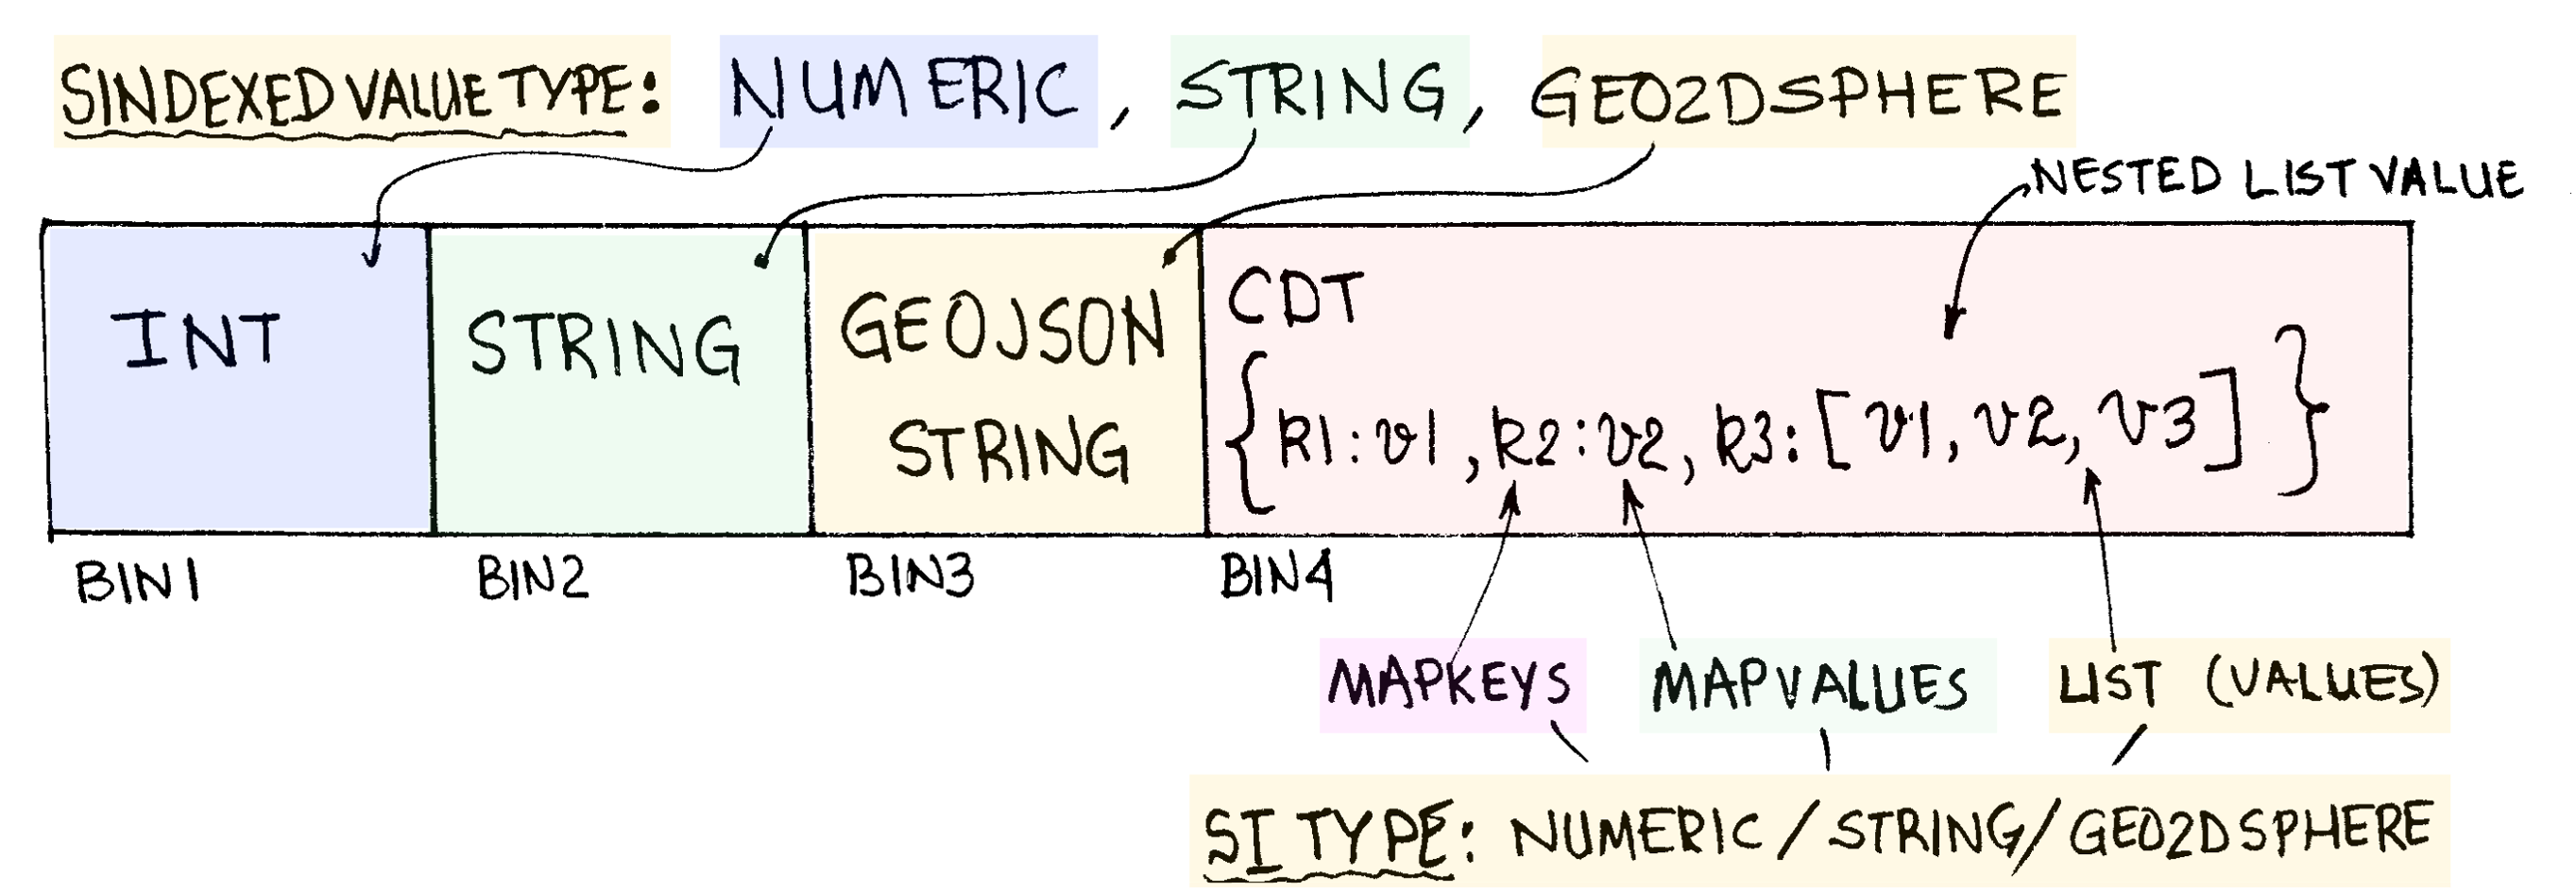 SINDEXED VALUE TYPE: NUMERIC, STRING, GEO2DSPHERE
NESTED LIST VALUE
INT
STRING
GEOJSON
STRING
CDT
{k1:v1, k2:v2, k3:[v1, v2, v3]}
BIN1 BIN2 BIN3 BIN4
MAPKEYS MAPVALUES LIST (VALUES)
SI TYPE: NUMERIC/STRING/GEO2DSPHERE